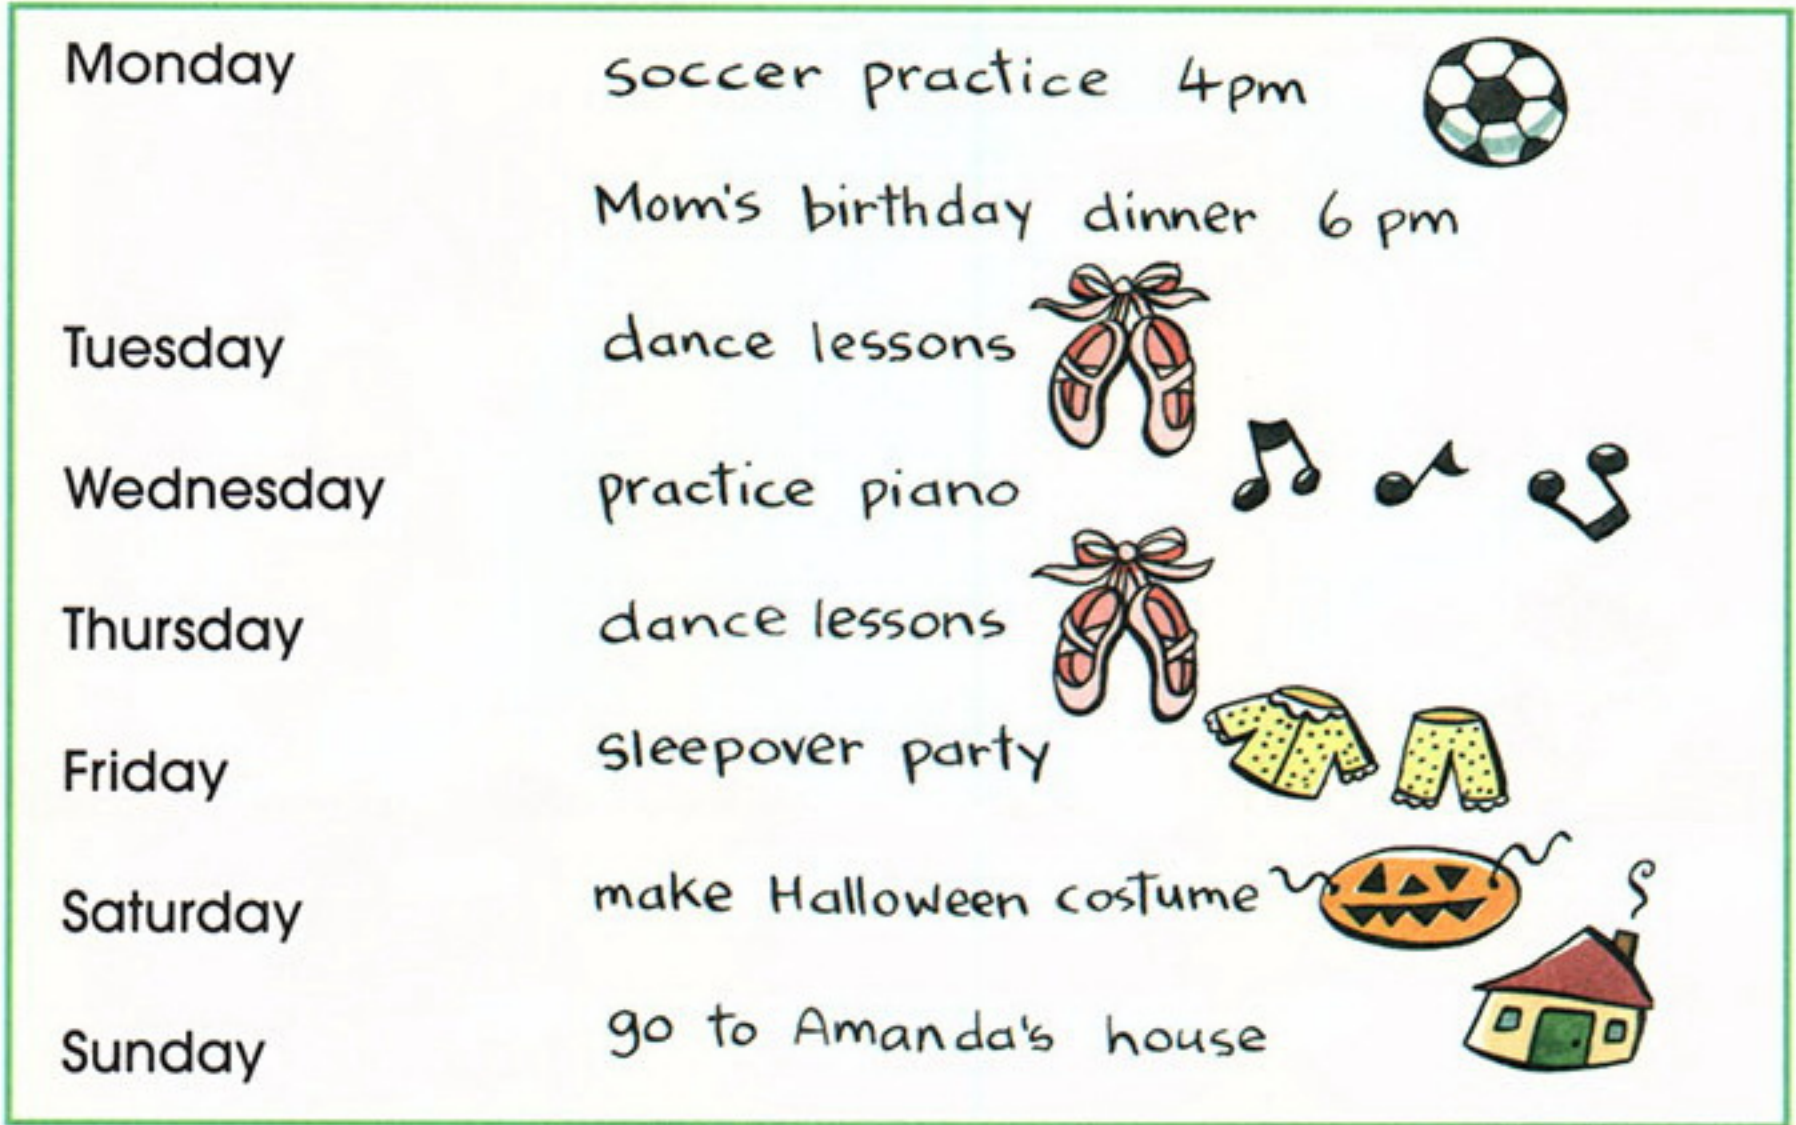 Monday soccer practice 4pm
Mom's birthday dinner 6 pm
Tuesday dance lessons
Wednesday practice piano
Thursday dance lessons
Friday sleepover party
Saturday make Halloween costume
Sunday go to Amanda's house